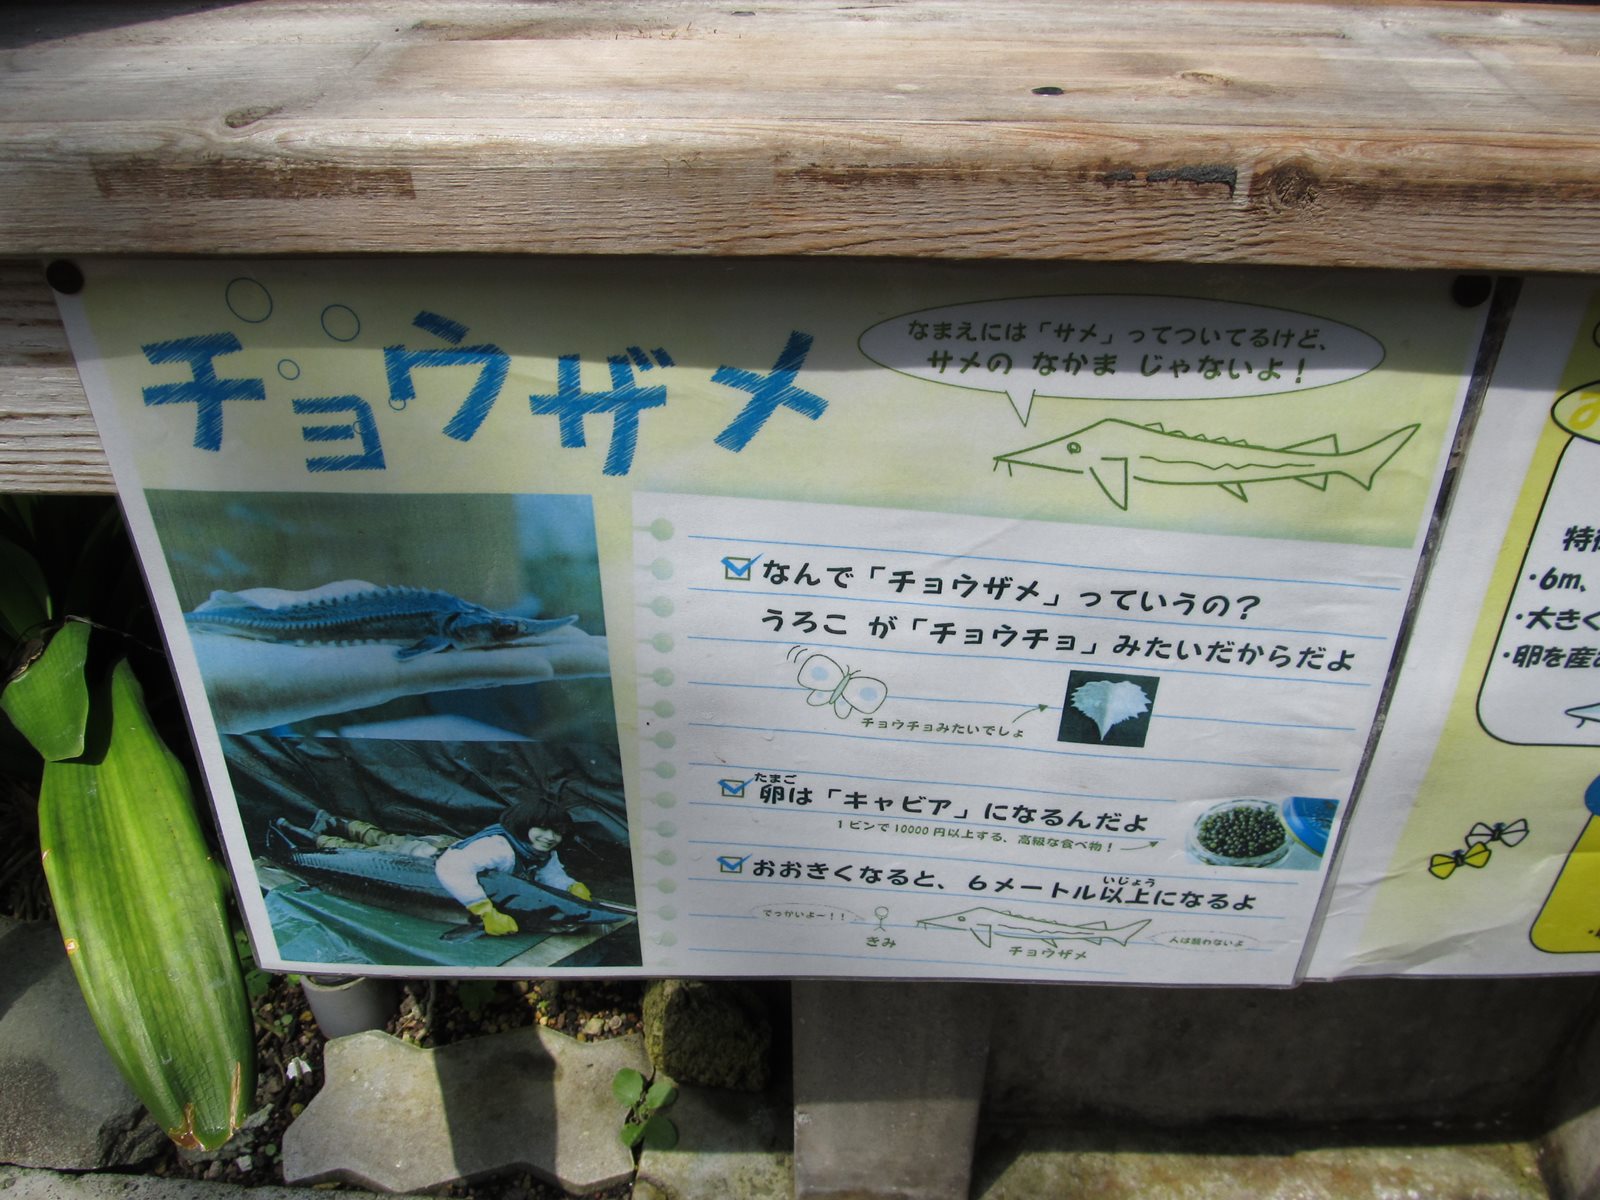 チョウザメ
なまえには「サメ」ってついてるけど、
サメの なかま じゃないよ!
なんで「チョウザメ」っていうの?
うろこ が「チョウチョ」みたいだからだよ
チョウチョみたいでしょ
たまご
卵は「キャビア」になるんだよ
1ビンで10000円以上する、高級な食べ物!
いじょう
おおきくなると、6メートル以上になるよ
でっかいよー!!
きみ
チョウザメ
人は襲わないよ
・6m、
・大きく
・卵を産